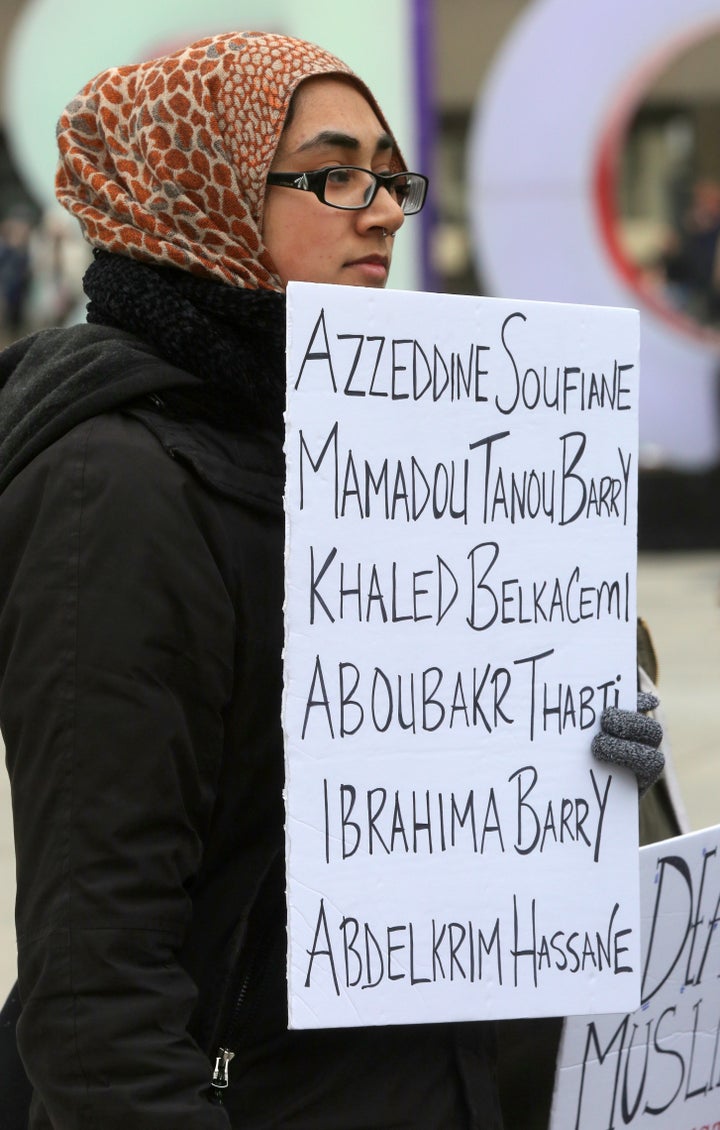 AZZEDDINE SOUFIANE
MAMADOU TANOU BARRY
KHALED BELKACEMI
ABOUBAKR THABTI
IBRAHIMA BARRY
ABDELKRIM HASSANE